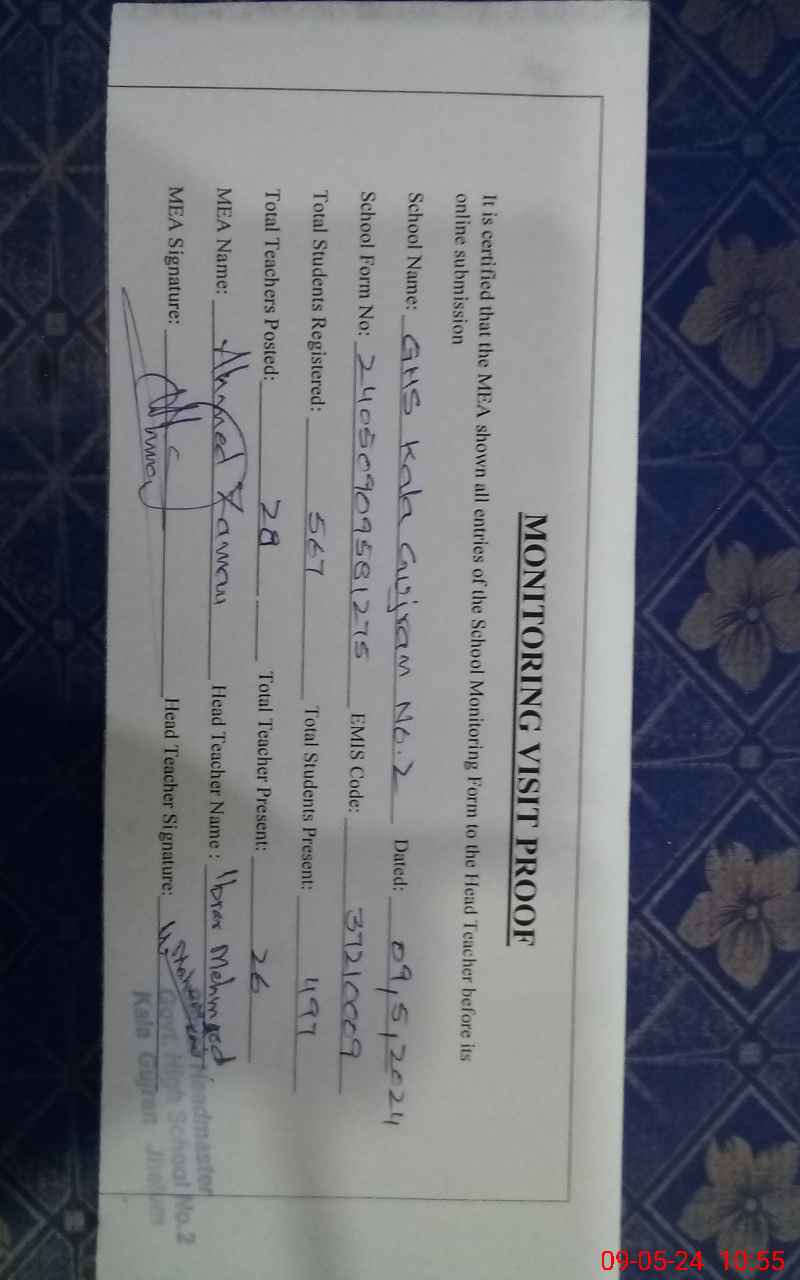 MONITORING VISIT PROOF
It is certified that the MEA shown all entries of the School Monitoring Form to the Head Teacher before its
online submission
School Name: GHS Kala Gujran No.2 Dated: 09,5,2024
School Form No: 24050909581275 EMIS Code: 37210009
Total Students Registered: 567 Total Students Present: 497
Total Teachers Posted: 28 Total Teacher Present: 26
MEA Name: Ahmed Head Teacher Name : Ibrar Mehmood
MEA Signature: Head Teacher Signature:
Headmaster
Govt. High School No.2
Kala Gujran Jhelum
09-05-24 10:55